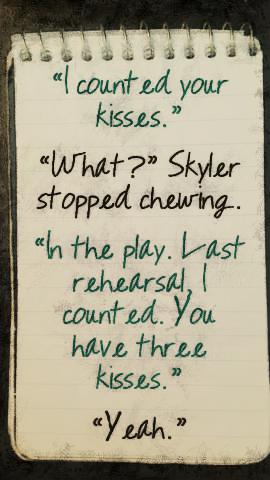 “I counted your
kisses.”
“What?” Skyler
stopped chewing.
“In the play. Last
rehearsal, I
counted. You
have three
kisses.”
“Yeah.”